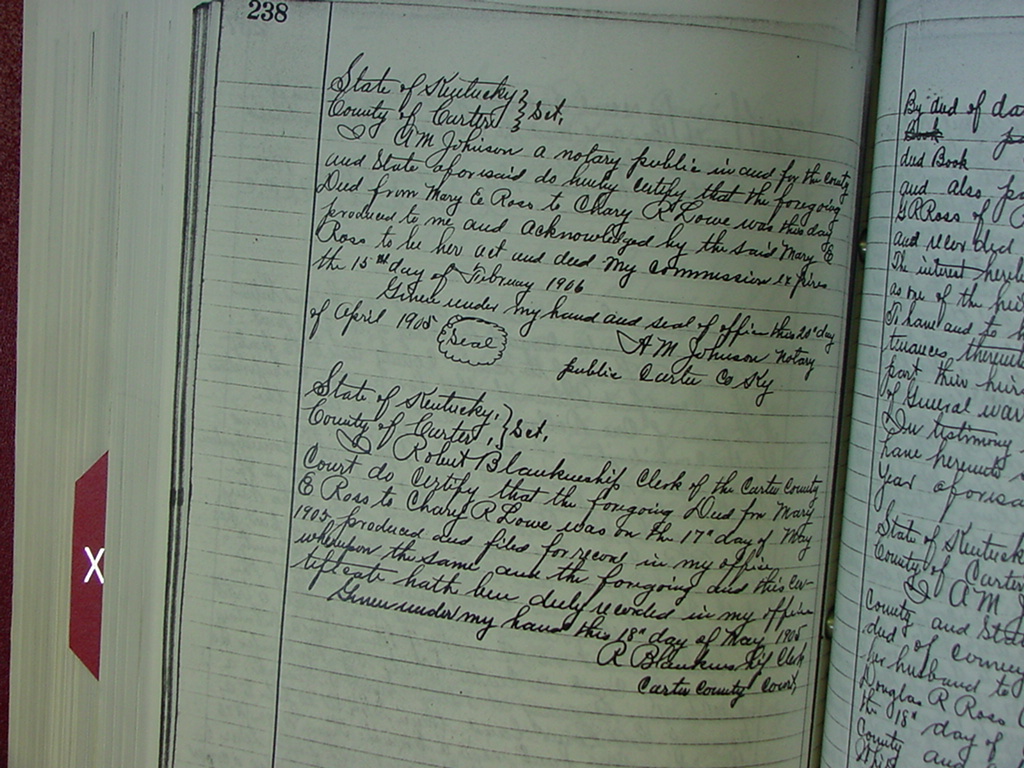 238
State of Kentucky }
County of Carter } Sct,
I A M Johnson a notary public in and for the County
and State aforesaid do hereby Certify that the foregoing
Deed from Mary E Ross to Chary R Lowe was this day
produced to me and acknowledged by the said Mary E
Ross to be her act and deed My commission expires
the 15th day of February 1906
Given under my hand and seal of office this 20th day
of April 1905 Seal A M Johnson Notary
public Carter Co Ky
State of Kentucky, }
County of Carter, } Sct,
I Robert Blankenship Clerk of the Carter County
Court do Certify that the foregoing Deed from Mary
E Ross to Chary R Lowe was on the 17th day of May
1905 produced and filed for record in my office
whereupon the same and the foregoing and this cer-
tificate hath been duly recorded in my office
Given under my hand this 18th day of May 1905
R Blankenship Clerk
Carter County Court,
By deed of da
Book
deed Book
and also
G R Ross of
and recorded
The interest
as one of the
To have and to h
thereun
part their heirs
of General warr
In testimony
have hereunto
Year aforesa
State of Kentuck
County of Carter
I A M J
County and Stat
deed of
her husband to
Douglas R Ross
the 18th day of
County and
X